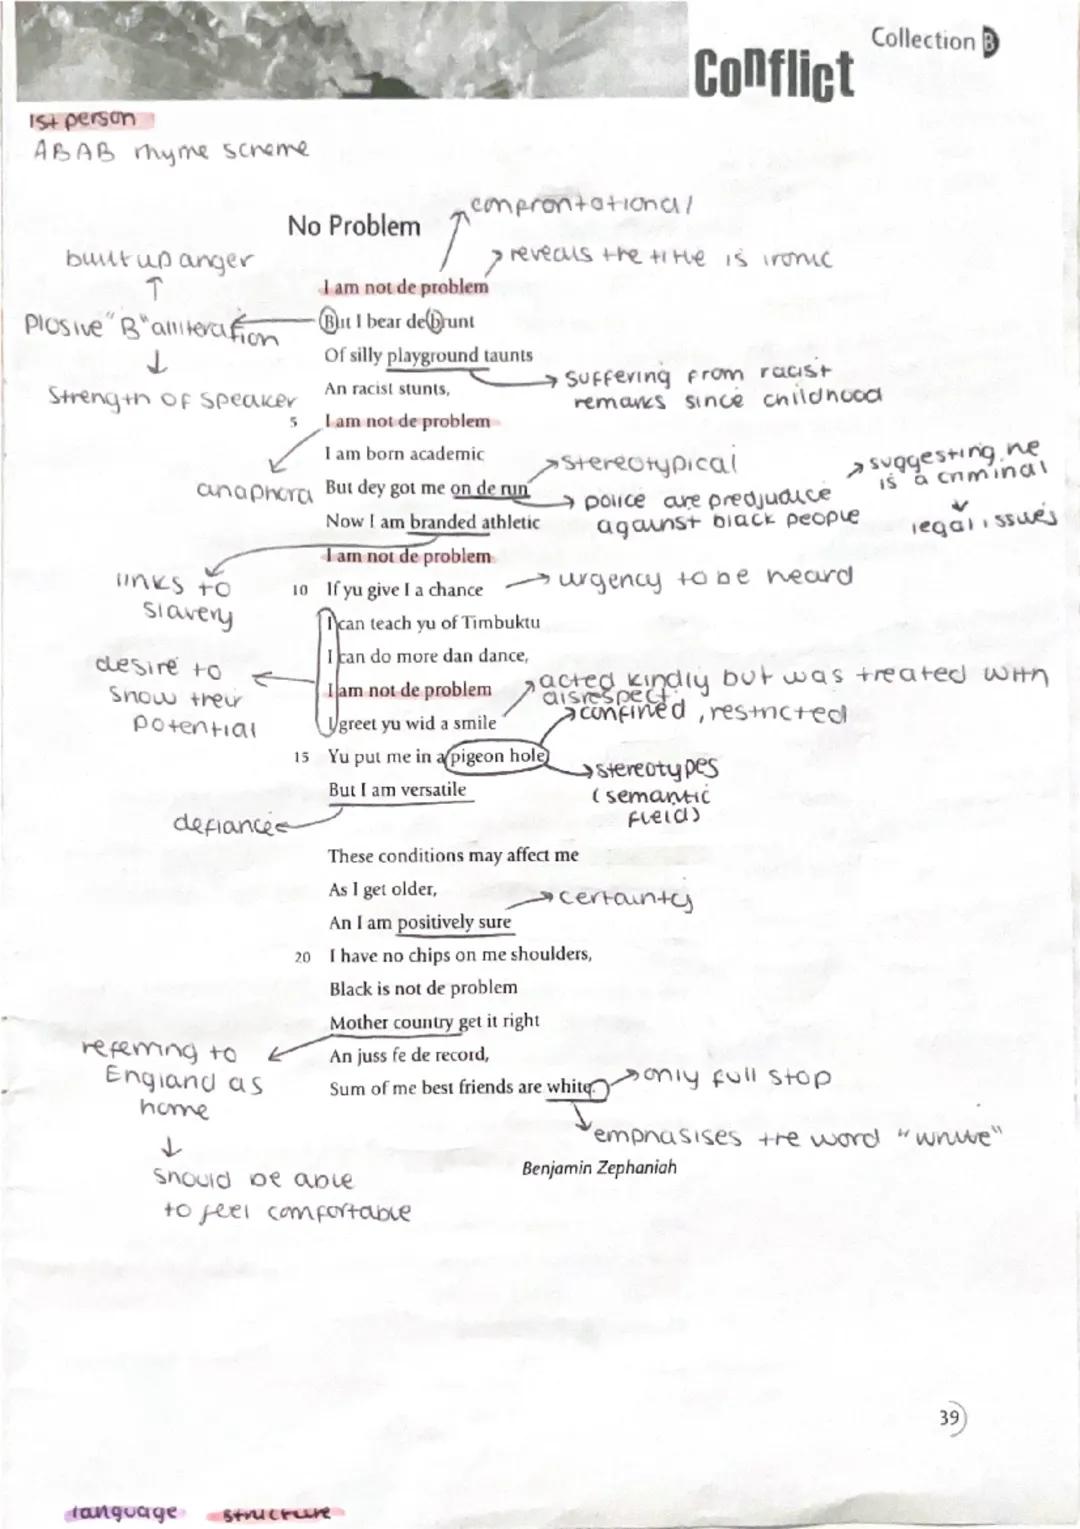 Collection B
Conflict
1st person
ABAB rhyme scheme
No Problem
confrontational
reveals the title is ironic
built up anger
I am not de problem
Plosive "B" alliteration
But I bear de brunt
Of silly playground taunts
Strength of speaker
An racist stunts,
suffering from racist
remarks since childhood
5 I am not de problem
I am born academic
stereotypical
suggesting he
is a criminal
anaphora
But dey got me on de run
police are predjudice
against black people
legal issues
Now I am branded athletic
I am not de problem
links to
slavery
10 If yu give I a chance
urgency to be heard
I can teach yu of Timbuktu
I can do more dan dance,
desire to
show their
potential
I am not de problem
acted kindly but was treated with
disrespect
I greet yu wid a smile
confined, restricted
15 Yu put me in a pigeon hole
stereotypes
(semantic
field)
But I am versatile
defiance
These conditions may affect me
As I get older,
certainty
An I am positively sure
20 I have no chips on me shoulders,
Black is not de problem
Mother country get it right
referring to
England as
home
An juss fe de record,
Sum of me best friends are white.
only full stop
emphasises the word "white"
should be able
to feel comfortable
Benjamin Zephaniah
39
language structure